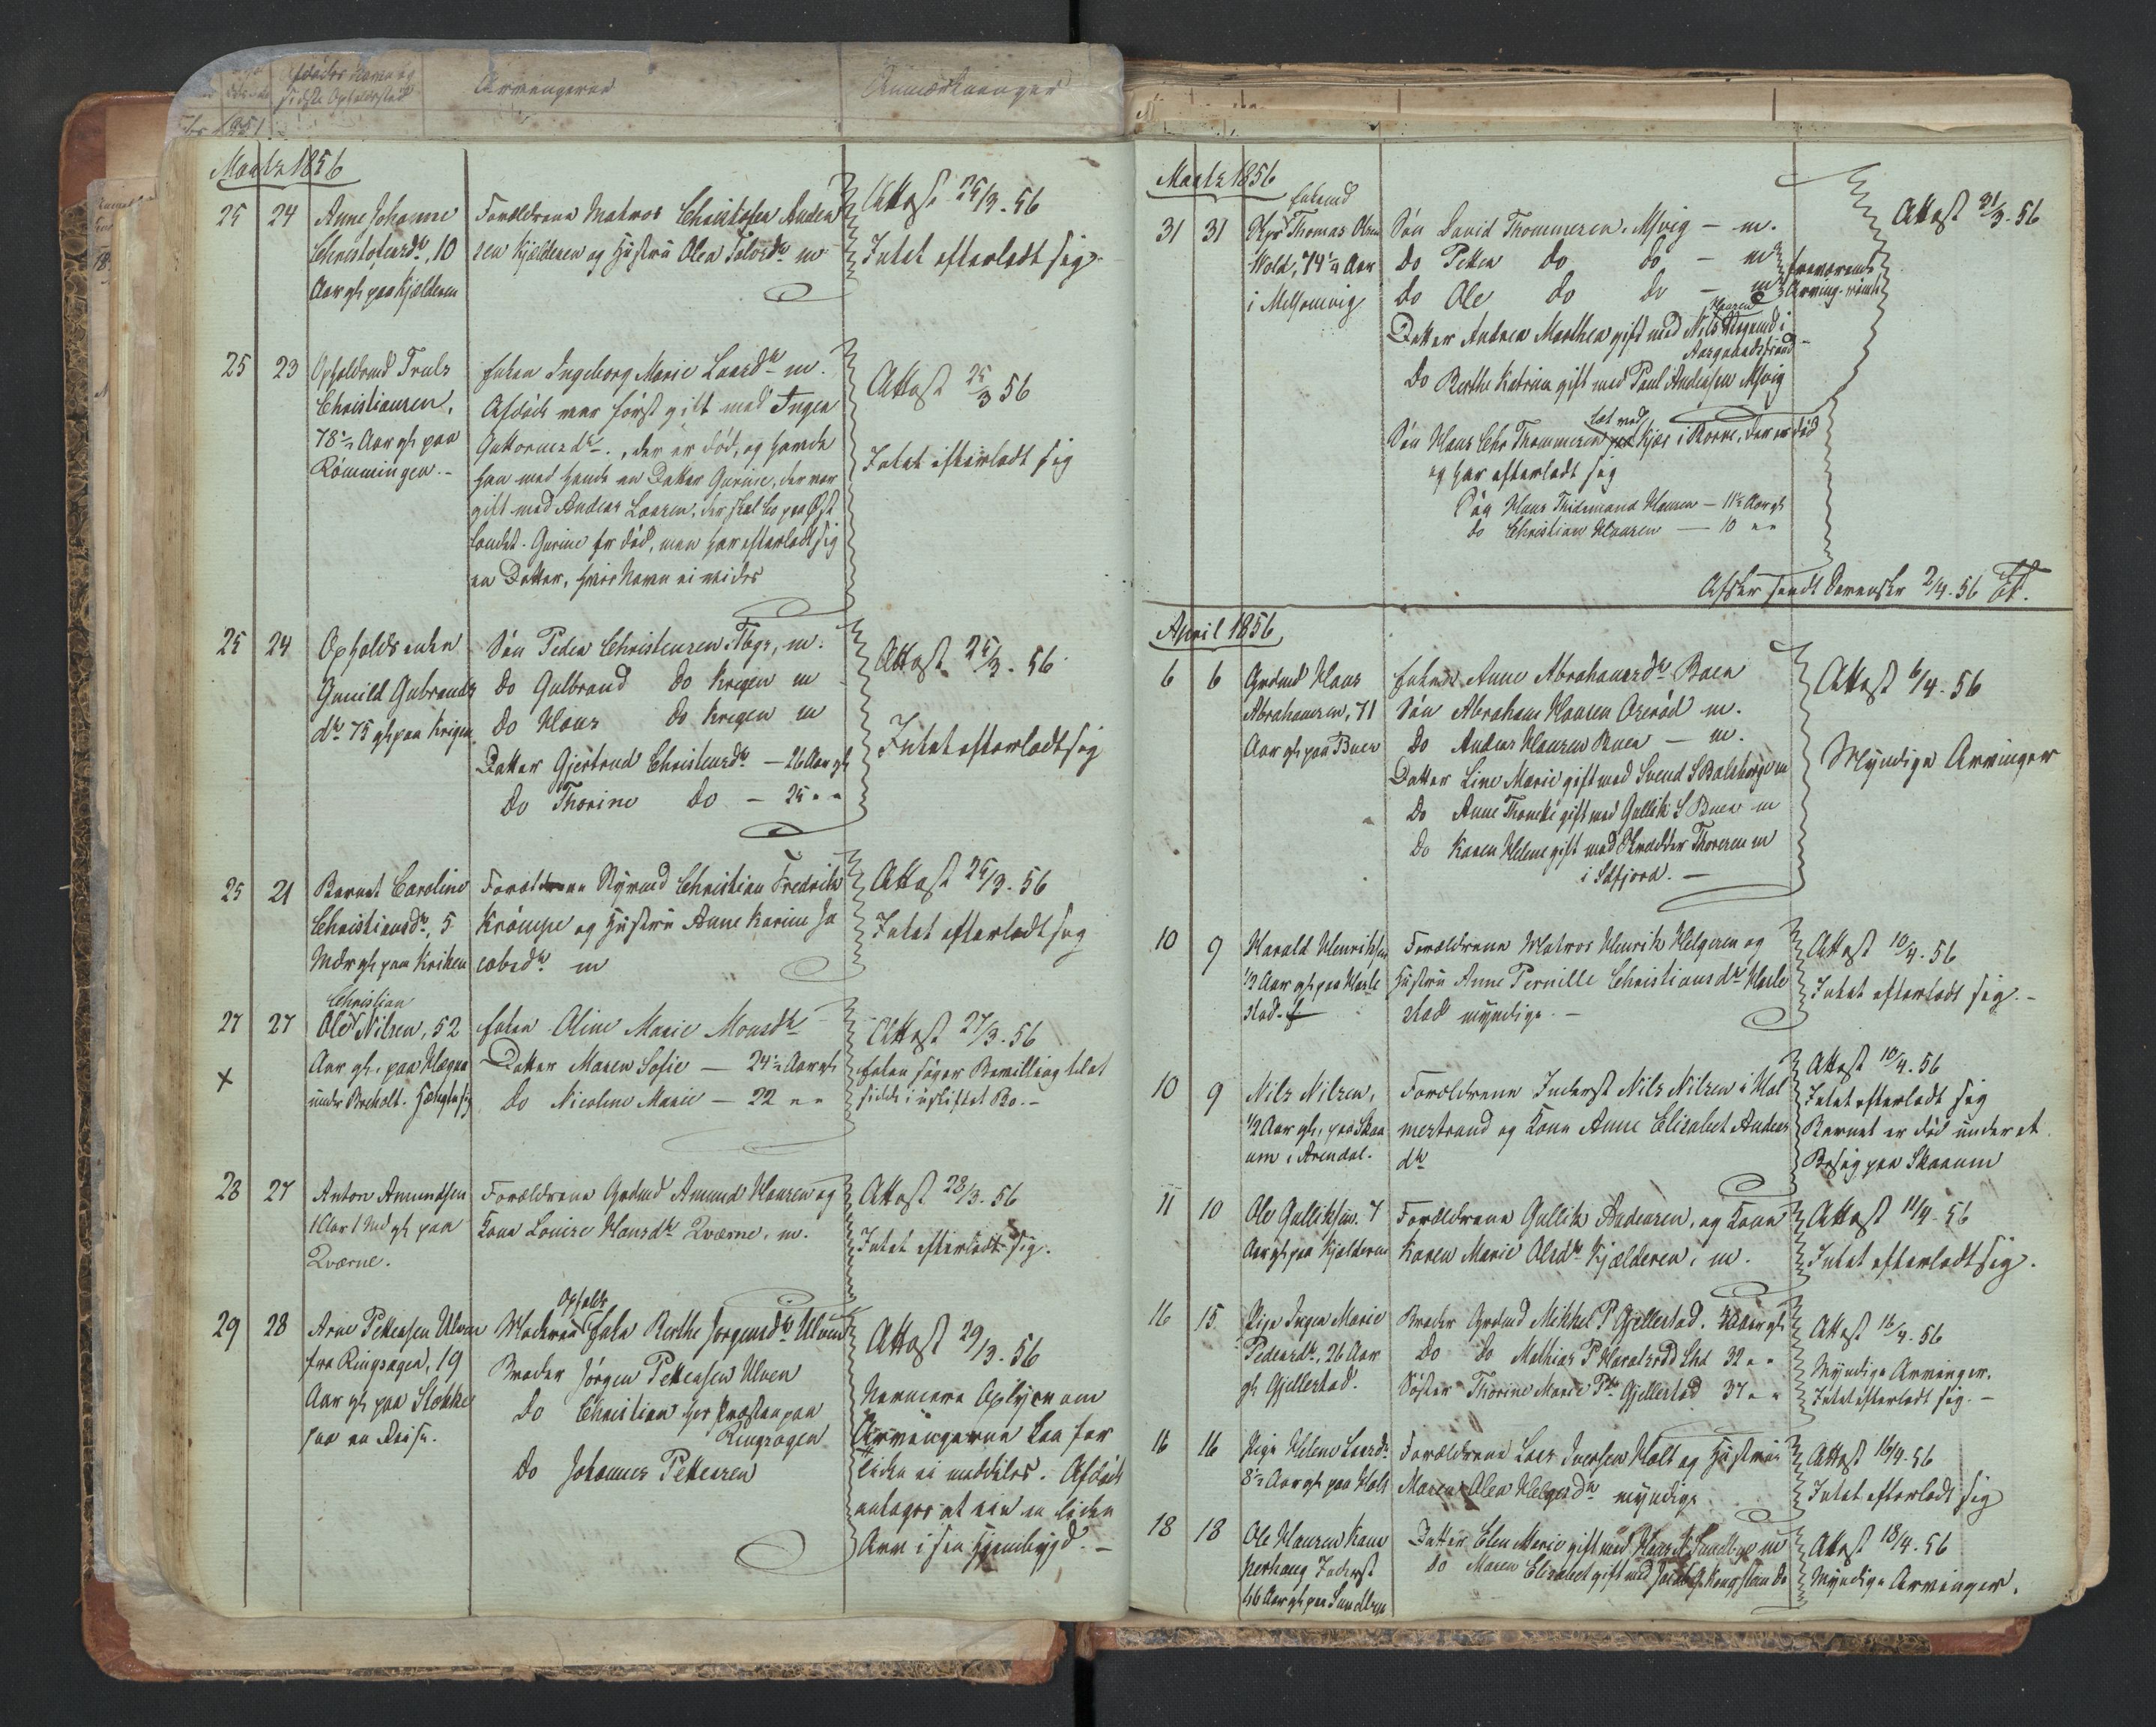 Afdødes Navn og
sidste Opholdssted
Arvingerne
Anmærkninger
1851
Marts 1856
25 24 Anne Johanne
Christofersdr, 10
Aar gl paa Kjælderen
Forældrene Matros Christofer Ander
sen Kjælderen og Hustru Olea Tolvsdr m
Attest 25/3. 56
Intet efterladt sig
25 23 Opholdsmd Truls
Christiansen,
78 1/2 Aar gl paa
Rømmingen.-
Enken Ingeborg Marie Larsdr m.
Afdøde var først gift med Inger
Guttormsdr., der er død, og havde
han med hende en Datter Gurine, der var
gift med Anders Larsen, der skal bo paa Øst
landet. Gurine er død, men har efterladt sig
en Datter, hvis Navn ei vides
Attest 25/3 56
Intet efterladt sig
25 24 Opholdsenken
Gunild Gubrands
dr 75 gl paa Krigen
Søn Peder Christensen Tbgs, m.
Do Gulbrand Do Krigen m
Do Hans Do Krigen m
Datter Gjertrud Christensdr - 26 Aar gl
Do Thorine Do - 25 " "
Attest 25/3. 56
Intet efterladt sig
25 21 Barnet Caroline
Christiansdr, 5
Mdr gl paa Kriken
Forældrene Styrmd Christian Fredrik
Krømpe og Hustru Anne Karine Ja
cobsdr m
Attest 25/3. 56
Intet efterladt sig
Christian
27 27 Ole Nilsen, 52
Aar gl. paa Hægna
under Breholt. Hængte sig
x
Enken Oline Marie Monsdr
Datter Maren Sofie - 24 1/2 Aar gl
Do Nicoline Marie - 22 " "
Attest 27/3. 56
Enken søger Bevilling til at
sidde i uskiftet Bo.-
28 27 Anton Amundsen
1 Aar 1 Md gl paa
Qværne.
Forældrene Grdmd Amund Hansen og
Kone Louise Hansdr Qværne, m.
Attest 28/3. 56
Intet efterladt sig.
29 28 Arne Pettersen Ulven
fra Ringsager, 19
Aar gl paa Stokke
paa en Reise.
Opholds
Moderen Enke Berthe Jørgensdr Ulven
Broder Jørgen Pettersen Ulven
Do Christian hos Præsten paa
Ringsager
Do Johannes Pettersen
Attest 29/3. 56
Nærmere Oplysn om
Arvingerne kan for
tiden ei meddeles. Afdøde
antages at eie en liden
Arv i sin Hjembygd.-
Marts 1856
Enkemd
31 31 Kps Thomas Olsen
Wold, 74 1/4 Aar
i Melsomvig
Søn David Thommesen, Mvig - m.
Do Petter Do Do - m
Do Ole Do Do - m
fraværende
Arving
Hansen
Datter Andrea Marthea gift med Nils i
Aasgaardstrand
Do Berthe Katrine gift med Paul Andersen Mvig
tæt ved
Søn Hans Chr Thommesen Kjær i Borre, der er død
og har efterladt sig
Søn Hans Thidemand Hansen - 11 1/2 Aar gl
do Christian Hansen - 10 " "
Attest 31/3. 56
Afskr sendt Sorenskr 2/4. 56
April 1856
6 6 Grdmd Hans
Abrahamsen, 71
Aar gl paa Buer
Enken Anne Abrahamsdr Buer
Søn Abraham Hansen Orerød m.
Do Anders Hansen Buer - m.
Datter Line Marie gift med Svend S Balsberge m
Do Anne Thomine gift med Gullik S Buer m
Do Karen Helene gift med Skrædder Thoresen m
i Idfjord.-
Attest 6/4. 56
Myndige Arvinger
10 9 Harald Henriksen
1/2 Aar gl paa Harle
stad.
Forældrene Matros Henrik Helgesen og
Hustru Anne Pernille Christiansdr Harle
stad myndige.-
Attest 10/4. 56
Intet efterladt sig.-
10 9 Nils Nilsen,
1/2 Aar gl. paa Skaa
um i Arendal.
Forældrene Inderst Nils Nilsen i Hol
mestrand og Kone Anne Elisabet Anders
dr
Attest 10/4. 56
Intet efterladt sig
Barnet er død under et
Besøg paa Skaaum
11 10 Ole Gulliksen. 7
Aar gl paa Kjælderen
Forældrene Gullik Andersen, og Kone
Karen Marie Olsdr Kjælderen, m.
Attest 11/4. 56
Intet efterladt sig.
16 15 Pige Inger Marie
Pedersdr, 26 Aar
gl Gjellestad.
Broder Grdmd Mikkel P Gjellestad. Aar gl
Do Do Mathias P Haralsrød Shd 32 " "
Søster Thorine Marie Pdr Gjellestad 37 " "
Attest 16/4. 56
Myndige Arvinger.
Intet efterladt sig.-
16 16 Pige Helene Larsdr
8 1/2 Aar gl paa Holt
Forældrene Lars Iversen Holt og Hustru
Maren Olea Helgesdr myndige
Attest 16/4. 56
Intet efterladt sig
18 18 Ole Hansen Kam
perhaug Inderst
66 Aar gl paa Sundbye
Datter Elen Marie gift med Hans N Sundbye m
Do Maren Elisabet gift med Kongstein do
Attest 18/4. 56
Myndige Arvinger.